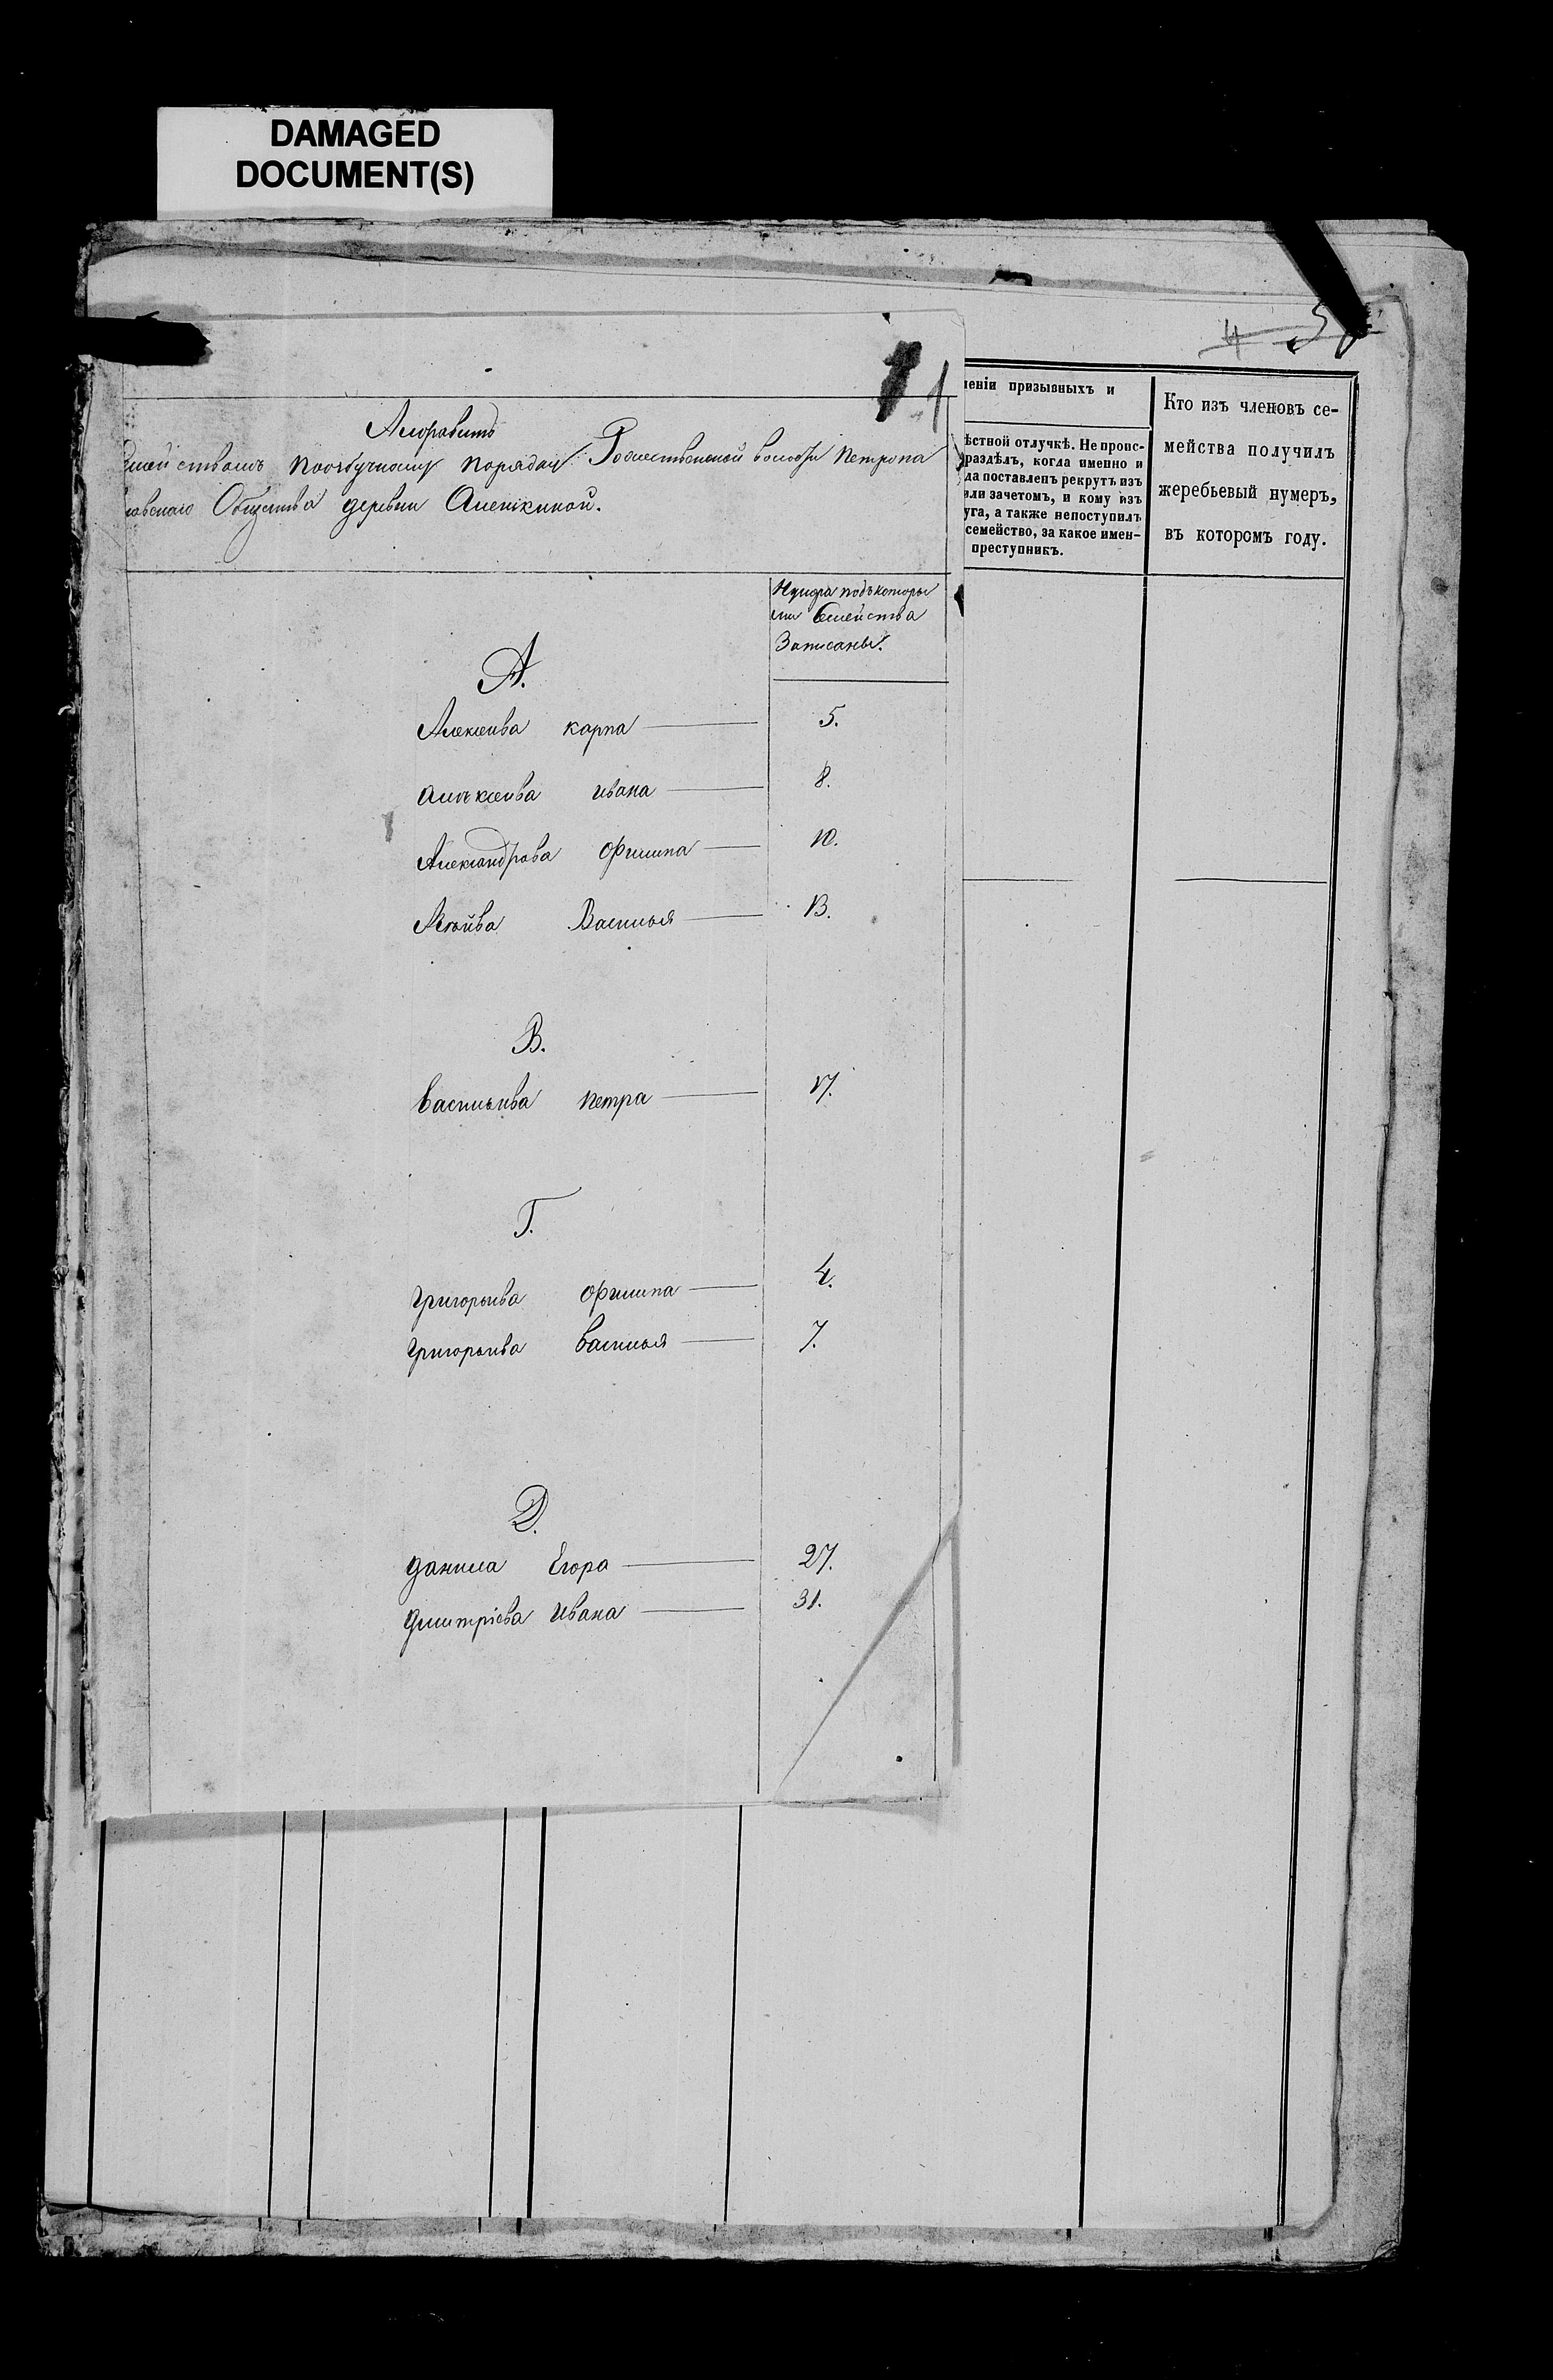 DAMAGED
DOCUMENT(S)
1
4
Алфавитъ
семействамъ поазбучному порядку Рождественской волости Петропа
ловскаго Общества деревни Алешкиной.
Нумера подъ которы
ми Семейства
Записаны.
А.
Алексеива карпа 5.
алъксеива ивана 8.
Александрова Филипа 10.
Агѣйва Василья 13.
В.
васильива петра 17.
Г.
григорьива Филипа 4.
григорьива василья 7.
Д.
данила Егора 27.
дмитріева ивана 31.
леніи призывныхъ и
ѣстной отлучкѣ. Не проис-
раздѣлъ, когда именно и
да поставленъ рекрутъ изъ
или зачетомъ, и кому изъ
уга, а также непоступилъ
семейство, за какое имен-
преступникъ.
Кто изъ членовъ се-
мейства получилъ
жеребьевый нумеръ,
въ которомъ году.